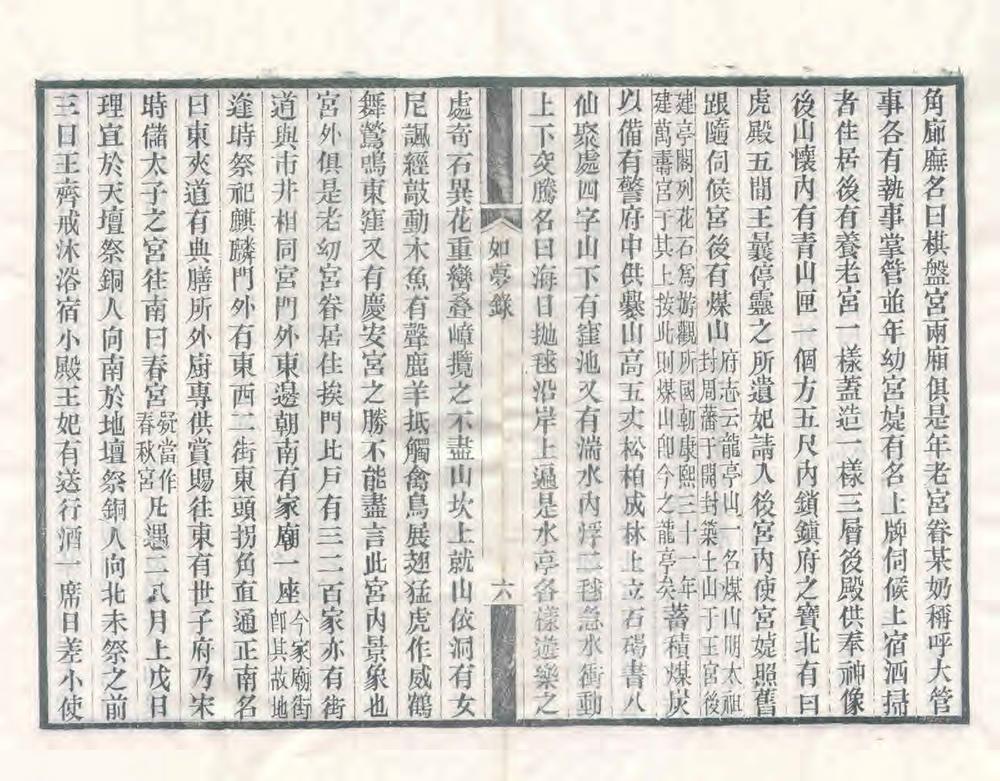 角廊廡名曰棋盤宮兩廂俱是年老宮眷某奶稱呼大管
事各有執事掌管並年幼宮媫有名上牌伺候上宿洒掃
者住居後有養老宮一樣蓋造一樣三層後殿供奉神像
後山懷內有青山匣一個方五尺內鎖鎮府之寶北有曰
虎殿五間王曩停靈之所遺妃請入後宮內使宮媫照舊
跟隨伺候宮後有煤山府志云龍亭山一名煤山明太祖封周藩于開封築土山于王宮後
建亭閣列花石爲游觀所國朝康熙三十一年建萬壽宮于其上按此則煤山卽今之龍亭矣蓄積煤炭
以備有警府中供爨山高五丈松柏成林上立石碣書八
仙聚處四字山下有窪池又有湍水內浮二毬急水衝動
上下突騰名曰海日抛毬沿岸上遍是水亭各樣遊樂之
如夢錄
六
處奇石異花重巒叠嶂攬之不盡山坎上就山依洞有女
尼諷經敲動木魚有聲鹿羊抵觸禽鳥展翅猛虎作威鶴
舞鶯鳴東窪又有慶安宮之勝不能盡言此宮內景象也
宮外俱是老幼宮眷居住挨門比戶有三二百家亦有街
道與市井相同宮門外東邊朝南有家廟一座今家廟街卽其故地
逢時祭祀麒麟門外有東西二街東頭拐角直通正南名
曰東夾道有典膳所外廚專供賞賜往東有世子府乃宋
時儲太子之宮往南曰春宮疑當作春秋宮凡遇二八月上戊日
理宜於天壇祭銅人向南於地壇祭銅人向北未祭之前
三日王齊戒沐浴宿小殿王妃有送行酒一席日差小使